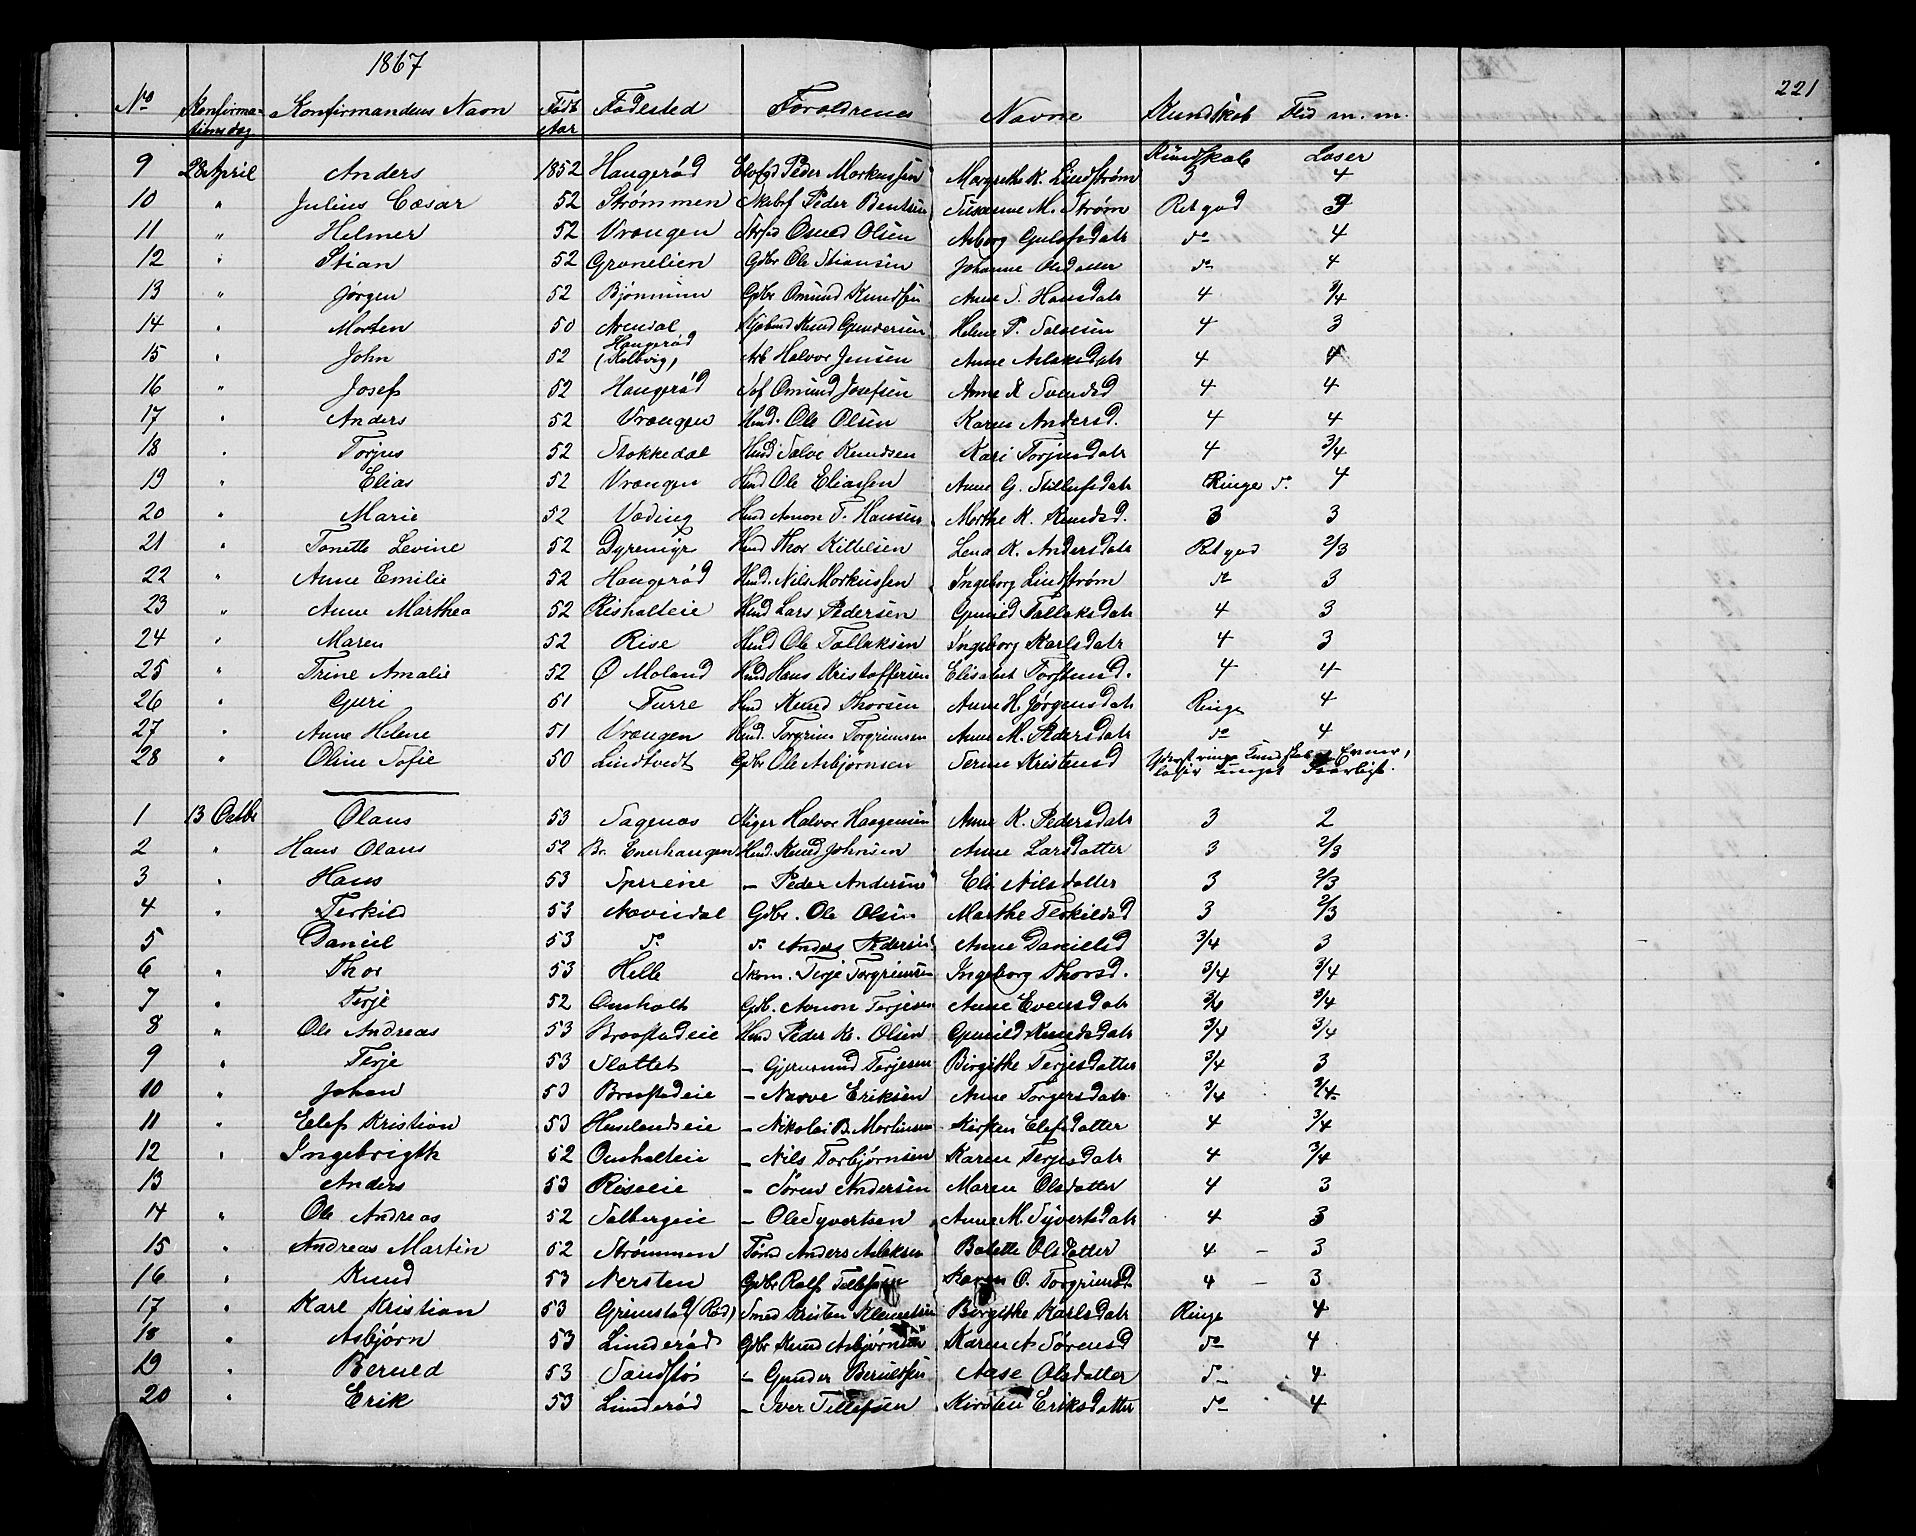 1867
221
No Konfirma- Konfirmandens Navn Født Fødested Forældrenes Navne Kundskab Flid m. m.
tionsdag Aar
Kundskab Læser
9 28 April Anders 1852 Haugerød Peder Markussen Margrethe K. Lindstrøm 3 4
10 " Julius Cæsar 52 Strømmen Peder Bentsen Susanne M. Strøm Ret god 3
11 " Helmer 52 Vrængen Osmund Olsen Asborg Gulofsdatr do 4
12 " Stian 52 Grønelien Gdbr Ole Stiansen Johanne Olsdatter do 4
13 " Jørgen 52 Gdbr Omund Knudsen Anne S. Hansdatr 4 3/4
14 " Morten 50 Arendal Knud Gundersen Helene P. 4 3
Haugerød
15 " John 52 (Kolbvig) Arb Halvor Jensen Anne Aslaksdatr 4 4
16 " Josef 52 Haugerød Omund Josefsen Anne K Svendsd 4 4
17 " Anders 52 Vrængen Husd. Ole Olsen Karen Andersd. 4 4
18 " Torjus 52 Stokkedal Husd Salve Knudsen Kari Torjusdatr 4 3/4
19 " Elias 52 Vrængen Husd Ole Eliassen Anne G. Ringe do. 4
20 " Marie 52 Væding Husd Aanon T. Hansen Marthe K. Knudsd. 3 3
21 " Tonette Levine 52 Dyremyr Husd Thor Kittelsen Lena K. Andersdatr Ret god 2/3
22 " Anne Emilie 52 Haugerød Husd. Nils Markussen Ingeborg Lindstrøm do 3
23 " Anne Marthea 52 Risholteie Husd Lars Pedersen Gunild Tallaksdatr 4 3
24 " Maren 52 Rise Husd Ole Tallaksen Ingeborg Karlsdatr 4 3
25 " Trine Amalie 52 Ø Moland Husd Hans Kristoffersen Elisabet 4 4
26 " Guri 51 Furre Husd Knud Thorsen Anne H. Jørgensdatr Ringe 4
27 " Anne Helene 51 Vrængen Husd. Torgrim Torgrimsen Anne M. Pedersdatr do 4
28 " Oline Sofie 50 Lindtvedt Gdbr Ole Asbjørnsen Serine Kristensd Yderst ringe Kundskab Evner,
læser meget daarligt.
1 13 Octbr Olaus 53 Sagenæs Stiger Halvor Haagensen Anne K. Pedersdatr 3 2
2 " Hans Olaus 52 Br. Enerhaugen Husd. Knud Johnsen Anne Larsdatter 3 2/3
3 " Hans 53 – Peder Andersen Eli Nilsdatter 3 2/3
4 " Terkild 53 Navisdal Gdbr. Ole Olsen Marthe Terkildsd 3 2/3
5 Daniel 53 do do Anders Pedersen Anne Danielsd 3/4 3
6 " Thor 53 Helle Skom. Terje Torgrimsen Ingeborg Thorsd. 3/4 3/4
7 " Terje 52 Omholt Gdb. Aanon Terjesen Anne Evensdatr 3/4 3/4
8 " Ole Andreas 53 Braastadeie Husd Peder K. Olsen Gunild Knudsdatr 3/4 3/4
9 " Terje 53 Slottet – Gjermund Terjesen Birgithe Terjesdatter 3/4 3
10 " Johan 53 Braastadeie – Narve Eriksen Anne Torgersdatr 3/4 3/4
11 " Elef Kristian 53 Huslandseie – Nikolai B. Mortensen Kirsten Elefsdatter 4 3/4
12 " Ingebrigth 52 Omholteie – Nils Torbjørnsen Karen Terjesdatr 4 3/4
13 Anders 53 Riseeie – Søren Andersen Maren Olsdatter 4 3
14 " Ole Andreas 52 Solbergeie – Ole Syvertsen Anne M. Syvertsdatr 4 3
15 " Andreas Martin 52 Strømmen Tømd Anders Aslaksen Bolette Olsdatter 4 – 3
16 " Knud 53 Nersten Gdbr Rolf Tellefsen Karen O. Torgrimsd 4 – 3
17 " Karl Kristian 53 Grimstad (Rød) Smed Kristen Klemetsen Birgithe Karlsdatr Ringe 4
18 " Asbjørn 53 Linderød Gdbr Knud Asbjørnsen Karen A. Sørensd do 4
19 " Beruld 53 Sandstøs – Gunder Beruldsen Aase Olsdatter do 4
20 " Erik 53 Linderød – Iver Tellefsen Kirsten Eriksdatter do 4